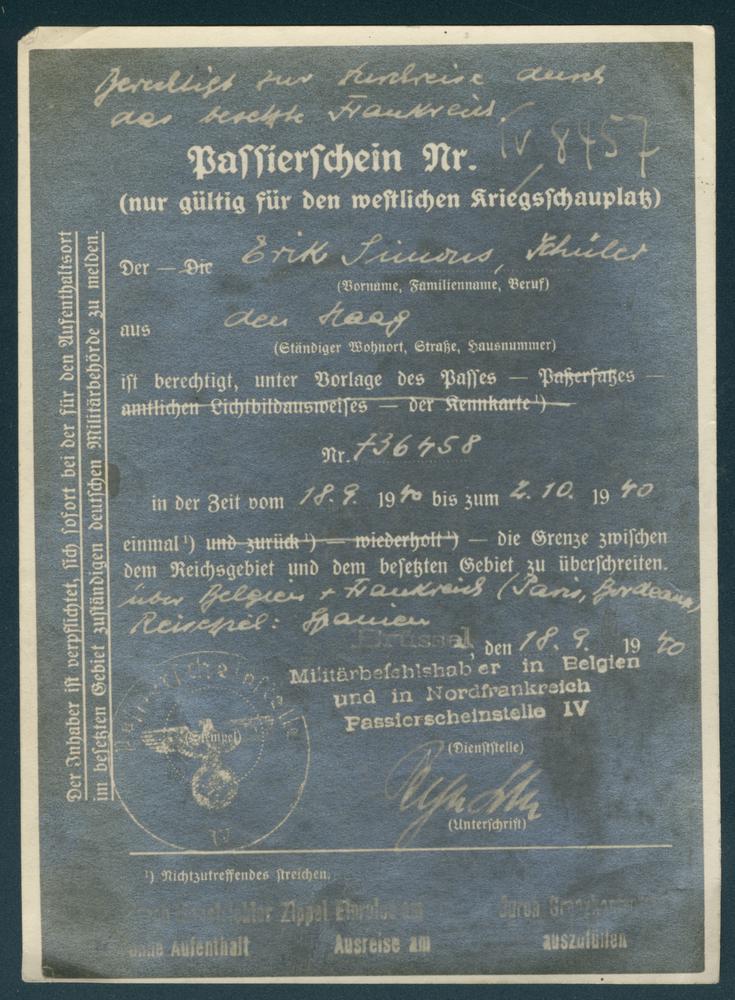 Berechtigt zur Durchreise durch
das besetzte Frankreich.
Passierschein Nr. IV 8457
(nur gültig für den westlichen Kriegsschauplatz)
Der — Die Erik Simons, Schüler
(Vorname, Familienname, Beruf)
aus den Haag
(Ständiger Wohnort, Straße, Hausnummer)
ist berechtigt, unter Vorlage des Passes — Paßersatzes —
amtlichen Lichtbildausweises — der Kennkarte ¹) —
Nr. 736458
in der Zeit vom 18.9. 1940 bis zum 2.10. 1940
einmal ¹) und zurück ¹) — wiederholt ¹) — die Grenze zwischen
dem Reichsgebiet und dem besetzten Gebiet zu überschreiten.
über Belgien + Frankreich (Paris, Bordeaux)
Reiseziel: Spanien
Brüssel, den 18.9. 1940
Militärbefehlshaber in Belgien
und in Nordfrankreich
Passierscheinstelle IV
(Dienststelle)
(Stempel)
IV
(Unterschrift)
¹) Nichtzutreffendes streichen.
Zippel Einreise am durch
ohne Aufenthalt Ausreise am auszufüllen
Der Inhaber ist verpflichtet, sich sofort bei der für den Aufenthaltsort
im besetzten Gebiet zuständigen deutschen Militärbehörde zu melden.